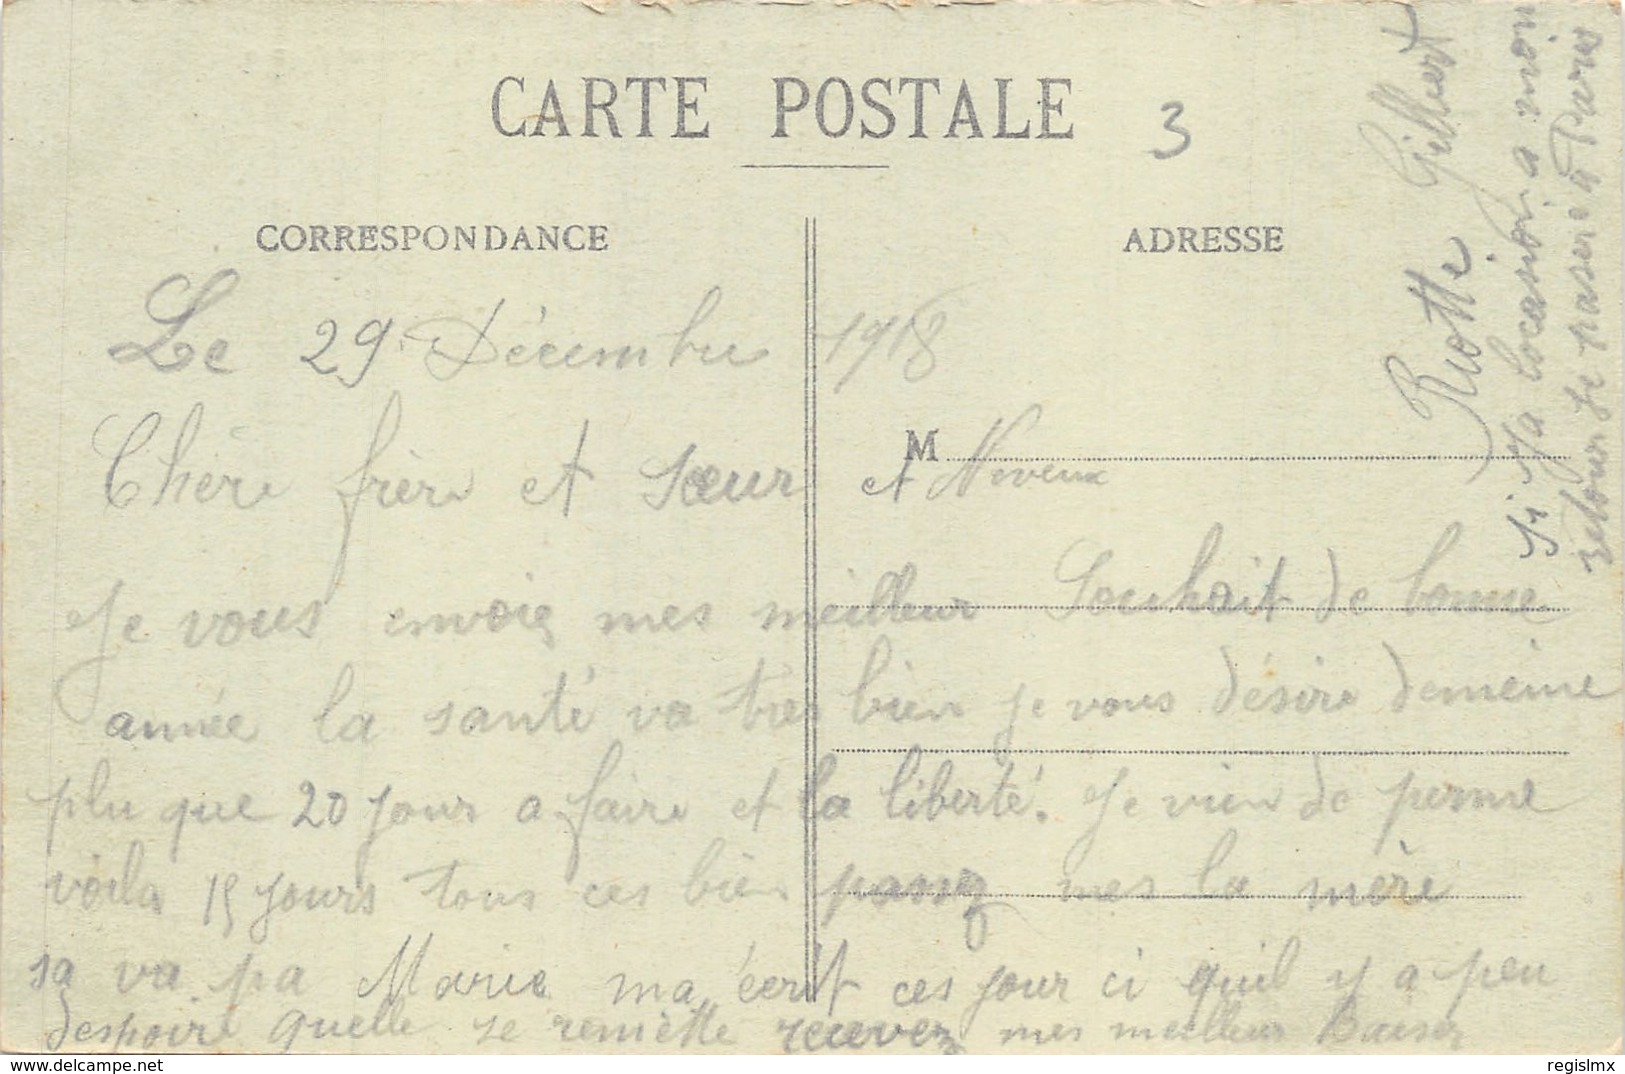 CARTE POSTALE
3
CORRESPONDANCE
ADRESSE
Le 29 Décembre 1918
M
Chère frère et sœur et Neveux
Je vous envoie mes meilleur Souhait de bonne
année la santé va très bien je vous désire demême
plu que 20 jour a faire et la liberté. Je vien de perme
voila 15 jours tous ces bien passez mes la mère
sa va pa Marie ma écrit ces jour ci quil y a peu
despoire quelle se remette recevez mes meilleur Baiser
Riotte Gilbert
Si Ja locasion a mon
retour je paserè a Paris
delcampe.net
regislmx